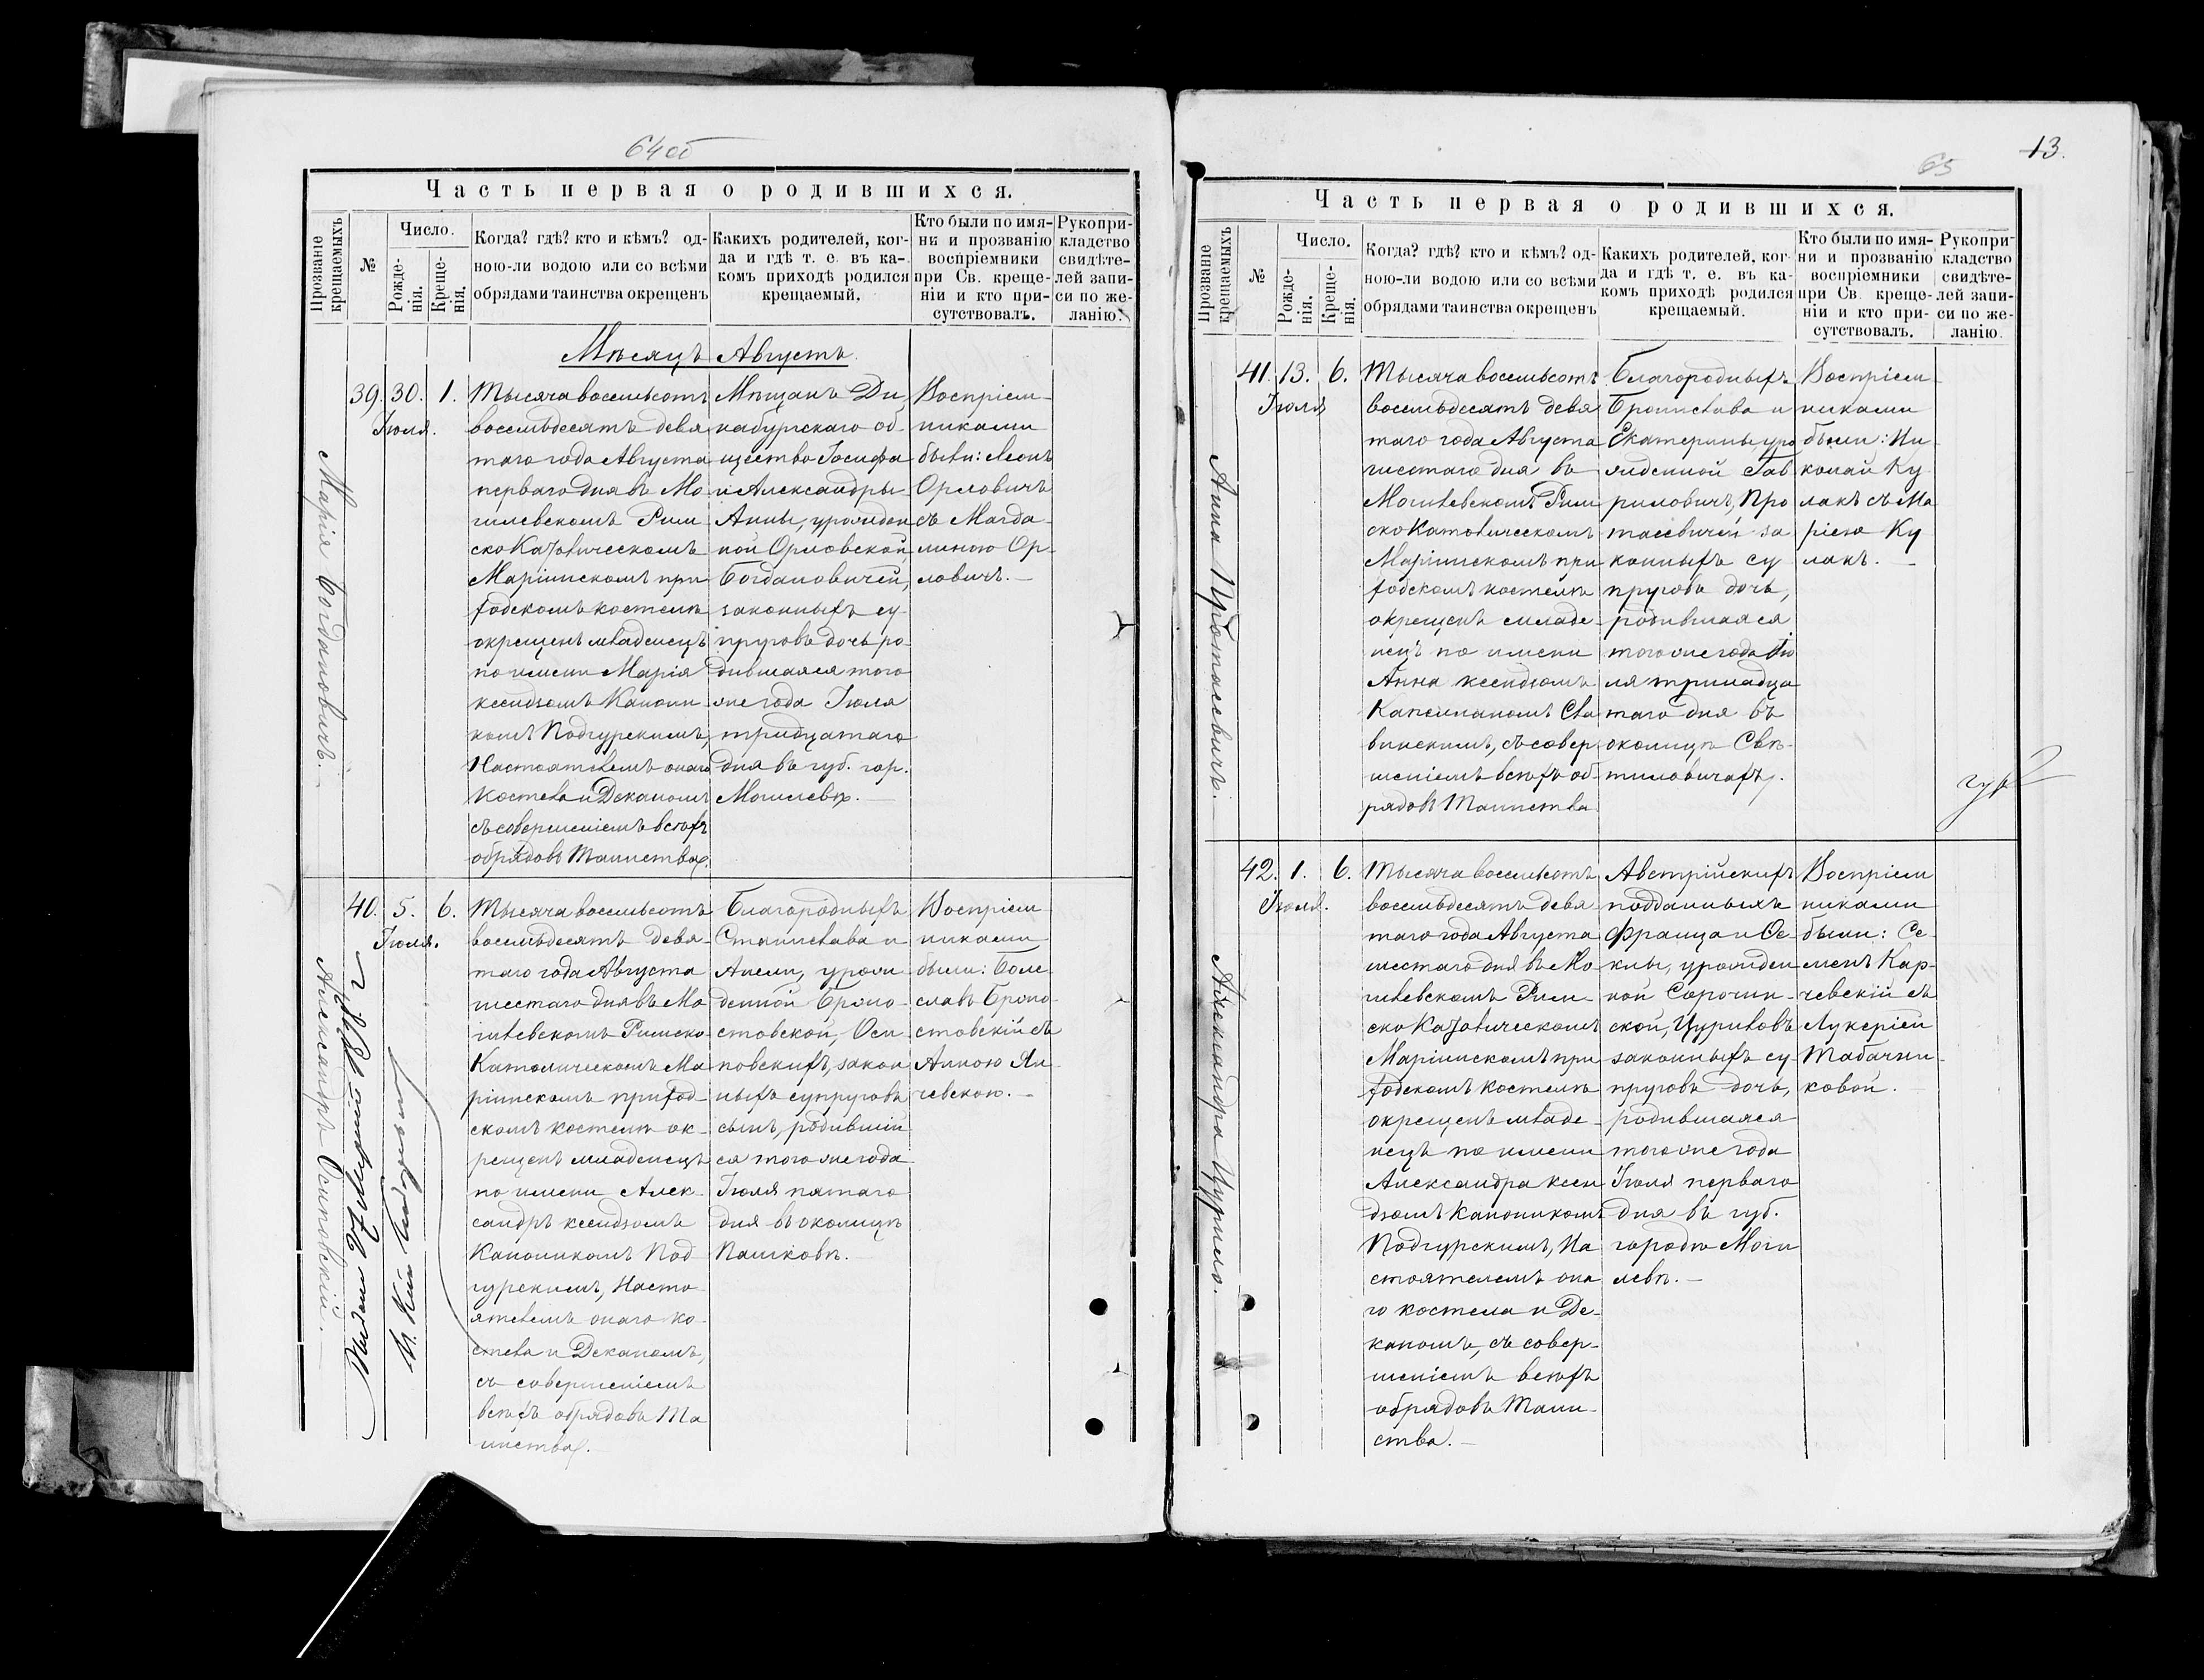 64 об
Часть первая о родившихся.
Прозваніе крещаемыхъ
№
Число.
Рожде-
нія.
Креще-
нія.
Когда? гдѣ? кто и кѣмъ? од-
ною-ли водою или со всѣми
обрядами таинства окрещенъ
Какихъ родителей, ког-
да и гдѣ т. е. въ ка-
комъ приходѣ родился
крещаемый.
Кто были по имя-
ни и прозванію
воспріемники
при Св. креще-
ніи и кто при-
сутствовалъ.
Рукопри-
кладство
свидѣте-
лей запи-
си по же-
ланію.
Мѣсяцъ Августъ.
Марія Богдановичъ.
39. 30. 1.
Іюля.
Тысяча восемьсотъ
восемьдесятъ девя
таго года Августа
перваго дня въ Мо
гилевскомъ Рим
ско Католическомъ
Маріинскомъ при
ходскомъ костелѣ
окрещенъ младенецъ
по имени Марія
ксендзомъ Канони
комъ Подгурскимъ,
Настоятелемъ онаго
костела и Деканомъ
съ совершеніемъ всѣхъ
обрядовъ Таинства.
Мѣщанъ Ди
набургскаго об
щества Іосифа
и Александры
Анны, урожден
ной Орловской,
Богдановичей,
законныхъ су-
пруговъ дочь ро-
дившаяся того
же года Іюля
тридцатаго
дня въ губ. гор.
Могилевѣ.
Воспріем-
никами
были: Леонъ
Орловичъ
съ Магда-
линою Ор-
ловичъ.
Александръ Осиповскій.
40. 5. 6.
Іюля.
Тысяча восемьсотъ
восемьдесятъ девя-
таго года Августа
шестаго дня въ Мо
гилевскомъ Римско-
Католическомъ Ма
ріинскомъ приход-
скомъ костелѣ ок-
рещенъ младенецъ
по имени Алек-
сандръ ксендзомъ
Каноникомъ Под
гурскимъ, Насто-
ятелемъ онаго ко-
стела и Деканомъ,
съ совершеніемъ
всѣхъ обрядовъ Та
инства.
Благородныхъ
Станислава и
Анели, урож
денной Броно-
стовской, Оси
повскихъ, закон
ныхъ супруговъ
сынъ, родившій
ся того же года
Іюля пятаго
дня въ околицѣ
Пашковѣ.
Воспріем
никами
были: Боле
славъ Броно
стовскій съ
Анною Ян
чевскою.
13.
65
Часть первая о родившихся.
Прозваніе крещаемыхъ
№
Число.
Рожде-
нія.
Креще-
нія.
Когда? гдѣ? кто и кѣмъ? од-
ною-ли водою или со всѣми
обрядами таинства окрещенъ
Какихъ родителей, ког-
да и гдѣ т. е. въ ка-
комъ приходѣ родился
крещаемый.
Кто были по имя-
ни и прозванію
воспріемники
при Св. креще-
ніи и кто при-
сутствовалъ.
Рукопри-
кладство
свидѣте-
лей запи-
си по же-
ланію.
Анна Протасевичъ.
41. 13. 6.
Іюля
Тысяча восемьсотъ
восемьдесятъ девя
таго года Августа
шестаго дня въ
Могилевскомъ Рим
ско Католическомъ
Маріинскомъ при
ходскомъ костелѣ
окрещенъ младе-
нецъ по имени
Анна ксендзомъ
Капелланомъ Сла
винскимъ, съ совер
шеніемъ всѣхъ об
рядовъ Таинства
Благородныхъ
Бронислава и
Екатерины уро
жденной Гав
риловичъ, Про
тасевичей за
конныхъ су
пруговъ дочь,
родившаяся
того же года Ію
ля тринадца
таго дня въ
околицѣ Свѣ-
тиловичахъ.
Воспріем
никами
были: Ни
колай Ку
лакъ съ Ма
ріею Ку
лакъ.
Александра Цурилло.
42. 1. 6.
Іюля.
Тысяча восемьсотъ
восемьдесятъ девя
таго года Августа
шестаго дня въ Мо
гилевскомъ Рим-
ско Католическомъ
Маріинскомъ при
ходскомъ костелѣ
окрещенъ младе-
нецъ по имени
Александра ксен
дзомъ Каноникомъ
Подгурскимъ, На
стоятелемъ она
го костела и Де-
каномъ, съ совер-
шеніемъ всѣхъ
обрядовъ Таин-
ства.
Австрійскихъ
подданныхъ
Франца и Ѳе-
клы, урожден
ной Сорочин-
ской, Цуриловъ
законныхъ су-
пруговъ дочь,
родившаяся
того же года
Іюля перваго
дня въ губ.
городѣ Моги
левѣ.
Воспріем
никами
были: Се-
менъ Кар-
чевскій съ
Лукеріей
Табачни-
ковой.